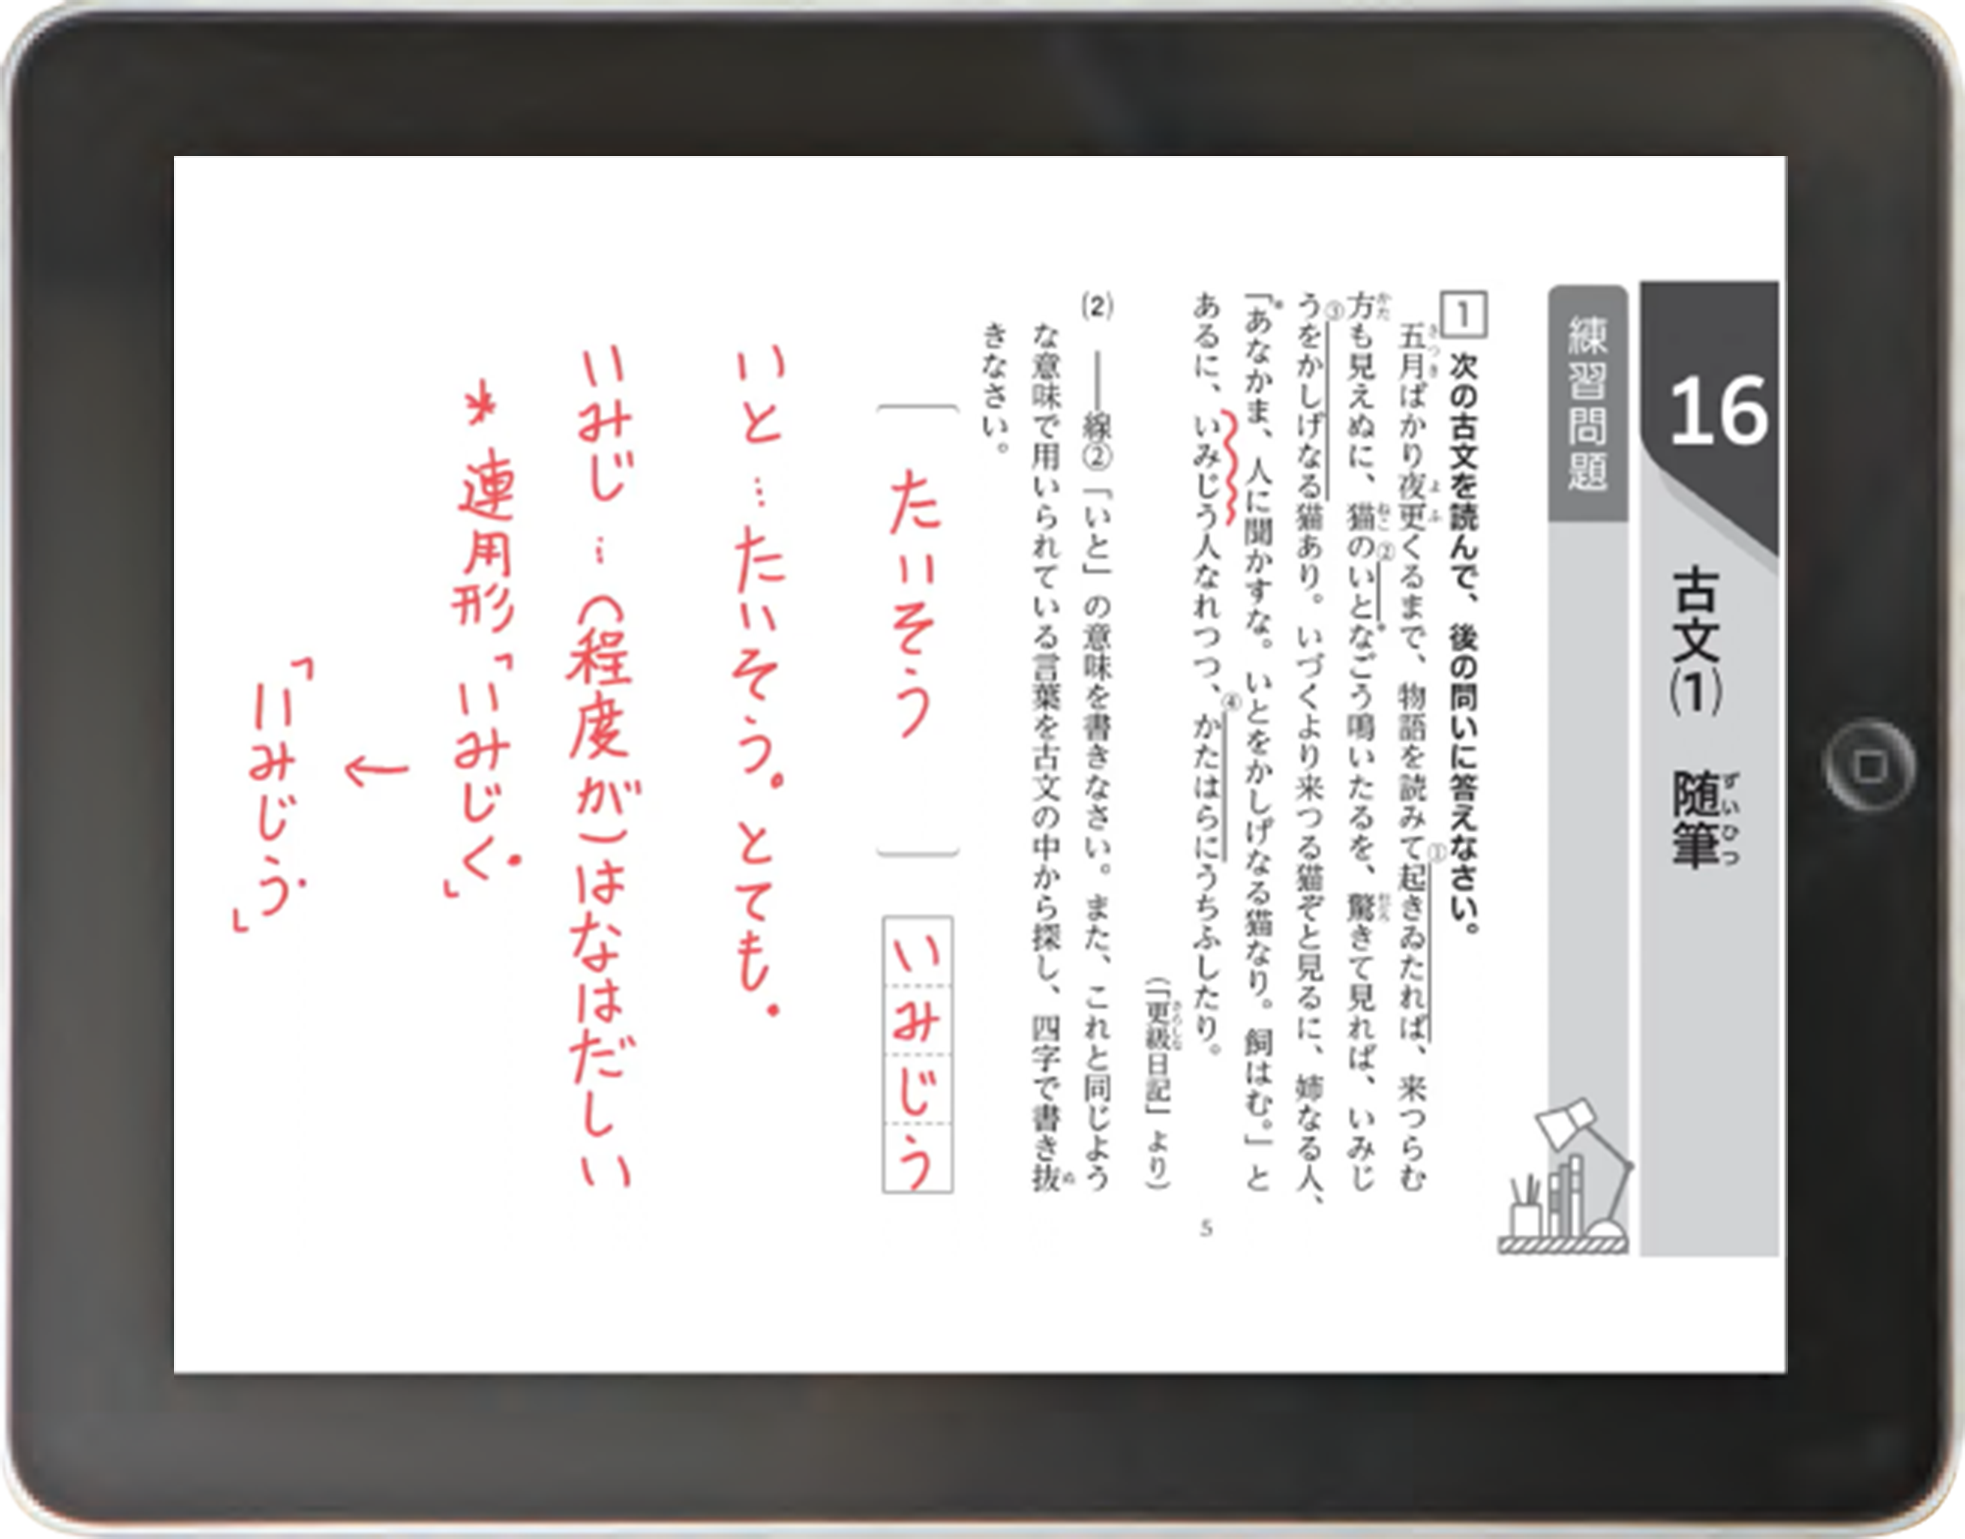 16 古文(1) 随筆
ずいひつ
練習問題
1 次の古文を読んで、後の問いに答えなさい。
五月ばかり夜更くるまで、物語を読みて①起きゐたれば、来つらむ
さつき よ ふ
方も見えぬに、猫の②いと*なごう鳴いたるを、驚きて見れば、いみじ
かた ねこ おどろ
う③をかしげなる猫あり。いづくより来つる猫ぞと見るに、姉なる人、
「*あなかま、人に聞かすな。いとをかしげなる猫なり。飼はむ。」と
あるに、いみじう人なれつつ、④かたはらにうちふしたり。
(「更級日記」より)
さらしな
5
(2) ――線②「いと」の意味を書きなさい。また、これと同じよう
な意味で用いられている言葉を古文の中から探し、四字で書き抜
ぬ
きなさい。
たいそう
いみじう
いと…たいそう。とても。
いみじ…(程度が)はなはだしい
*連用形「いみじく」
←
「いみじう」